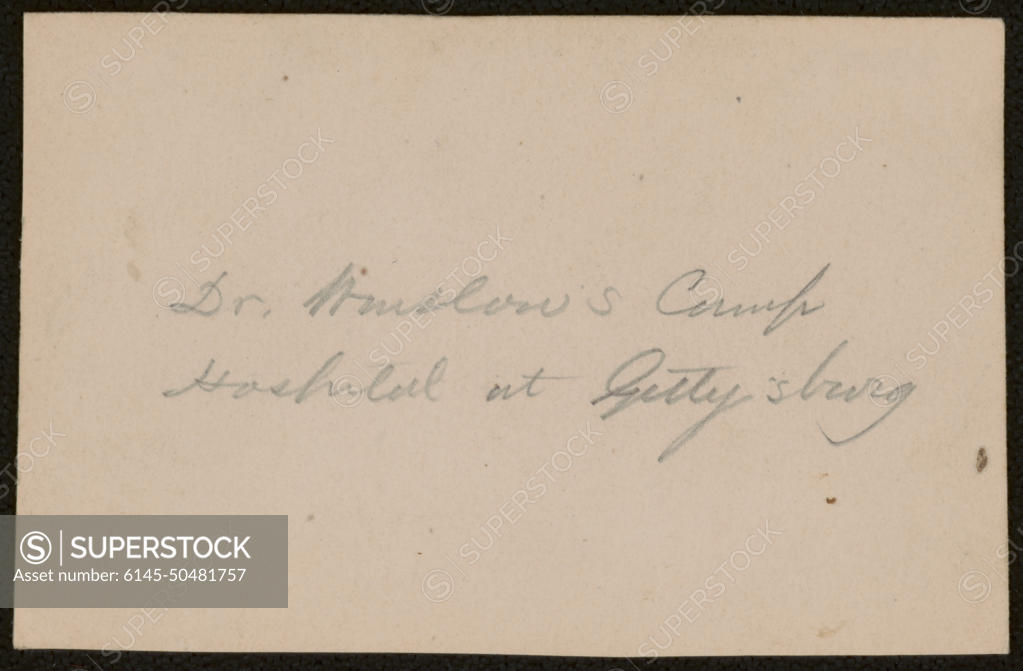 Dr. Winslow's Camp
Hospital at Gettysburg
SUPERSTOCK
Asset number: 6145-50481757